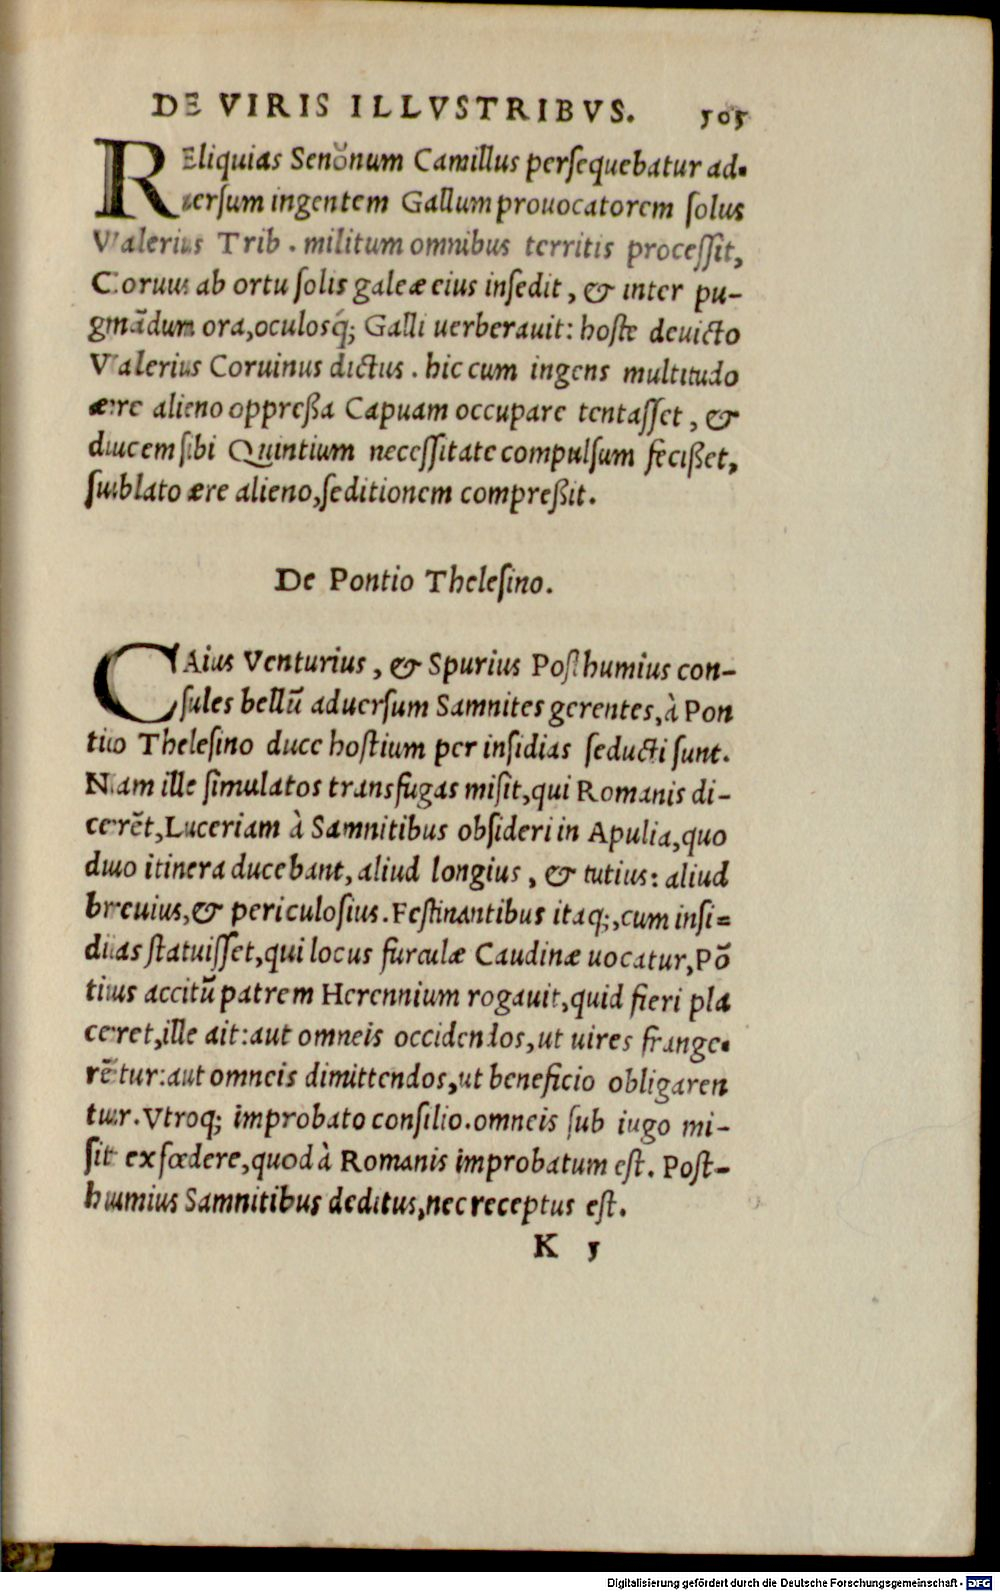 DE VIRIS ILLVSTRIBVS. 505
REliquias Senõnum Camillus persequebatur ad-
uersum ingentem Gallum prouocatorem solus
Valerius Trib. militum omnibus territis processit,
Coruus ab ortu solis galeæ eius insedit, & inter pu-
gnãdum ora, oculosq́; Galli uerberauit: hoste deuicto
Valerius Coruinus dictus. hic cum ingens multitudo
ære alieno oppreßa Capuam occupare tentasset, &
ducem sibi Quintium necessitate compulsum fecißet,
sublato ære alieno, seditionem compreßit.
De Pontio Thelesino.
CAius Venturius, & Spurius Posthumius con-
sules bellũ aduersum Samnites gerentes, à Pon
tio Thelesino duce hostium per insidias seducti sunt.
Nam ille simulatos transfugas misit, qui Romanis di-
cerẽt, Luceriam à Samnitibus obsideri in Apulia, quo
duo itinera ducebant, aliud longius, & tutius: aliud
breuius, & periculosius. Festinantibus itaq;, cum insi-
dias statuisset, qui locus furculæ Caudinæ uocatur, Põ
tius accitũ patrem Herennium rogauit, quid fieri pla
ceret, ille ait: aut omneis occidendos, ut uires frange-
rẽtur: aut omneis dimittendos, ut beneficio obligaren
tur. Vtroq; improbato consilio. omneis sub iugo mi-
sit ex fœdere, quod à Romanis improbatum est. Post-
humius Samnitibus deditus, nec receptus est.
K 5
Digitalisierung gefördert durch die Deutsche Forschungsgemeinschaft - DFG